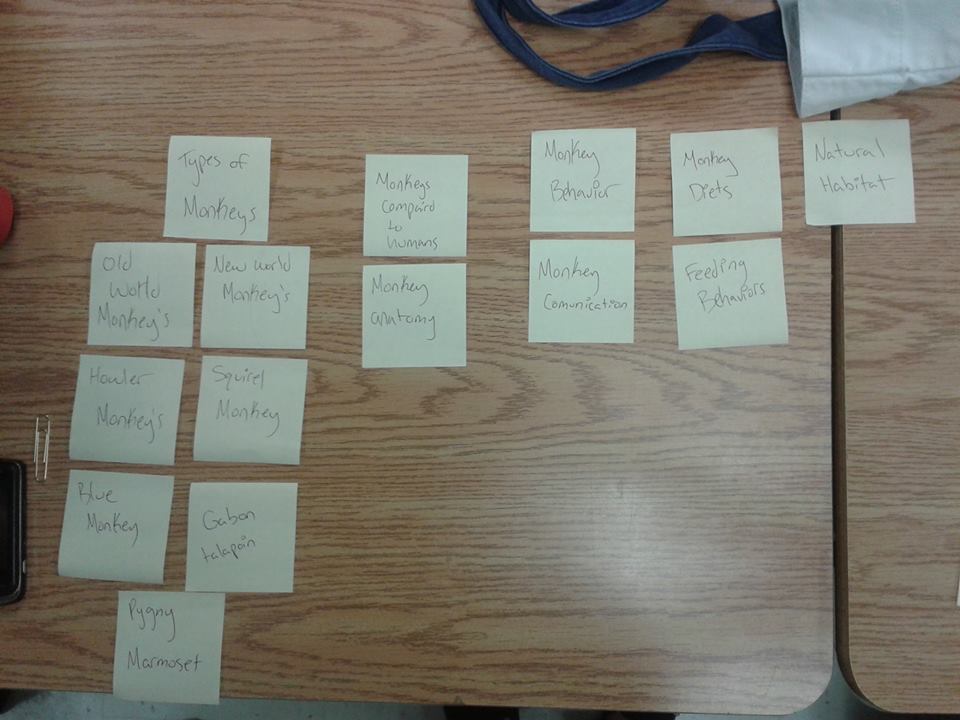 Types of
Monkeys
Old
World
Monkey's
New world
Monkey's
Howler
Monkey's
Squirel
Monkey
Blue
Monkey
Gabon
talapoin
Pygny
Marmoset
Monkeys
Compaird
to
humans
Monkey
anatomy
Monkey
Behavior
Monkey
Comunication
Monkey
Diets
Feeding
Behaviors
Natural
Habitat